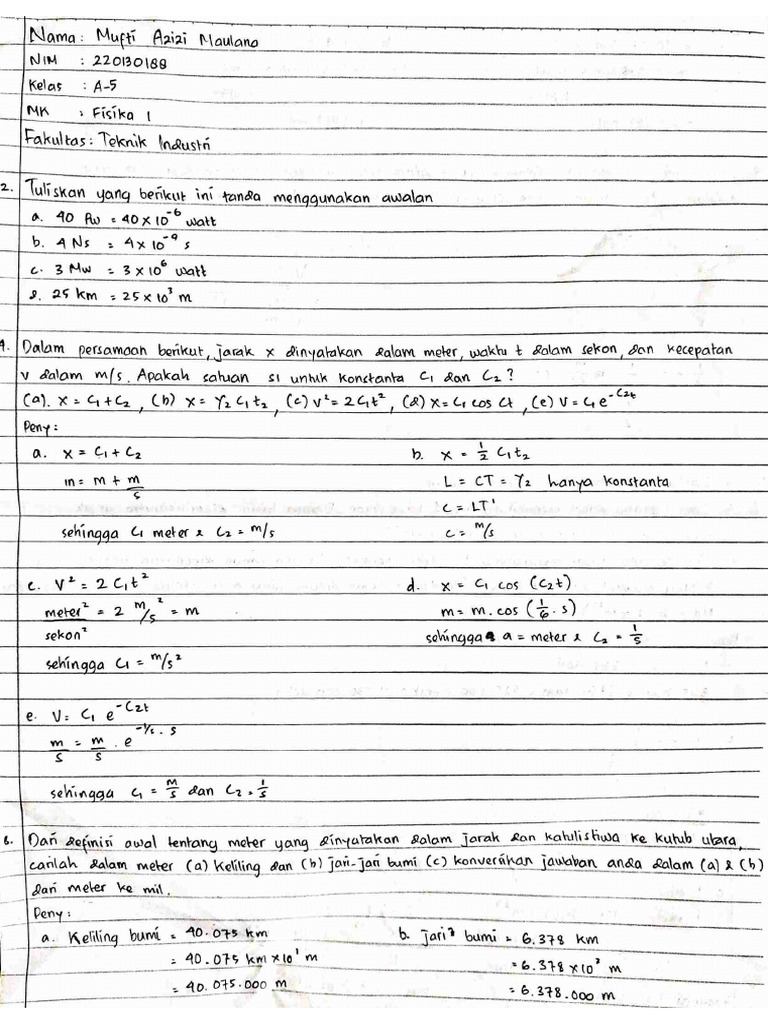 Nama : Mufti Azizi Maulana
NIM : 220130188
Kelas : A-5
MK : Fisika 1
Fakultas : Teknik Industri
2. Tuliskan yang berikut ini tanda menggunakan awalan
a. 40 Pw = 40 × 10⁻⁶ watt
b. 4 Ns = 4 × 10⁻⁹ s
c. 3 Mw = 3 × 10⁶ watt
d. 25 km = 25 × 10³ m
4. Dalam persamaan berikut, jarak x dinyatakan dalam meter, waktu t dalam sekon, dan kecepatan
v dalam m/s. Apakah satuan SI untuk konstanta C₁ dan C₂ ?
(a). x = C₁ + C₂ , (b) x = ½ C₁ t₂ , (c) v² = 2 C₁ t² , (d) x = C₁ cos Ct , (e) V = C₁ e^-C₂t
Peny :
a. x = C₁ + C₂
m = m + m/s
sehingga C₁ meter & C₂ = m/s
b. x = ½ C₁ t₂
L = CT = ½ hanya konstanta
C = LT'
C = m/s
c. V² = 2 C₁ t²
meter²/sekon² = 2 m/s² = m
sehingga C₁ = m/s²
d. x = C₁ cos (C₂t)
m = m. cos (1/6 . s)
sehingga a = meter & C₂ = 1/s
e. V = C₁ e^-C₂t
m/s = m/s . e^-1/s . s
sehingga C₁ = m/s dan C₂ = 1/s
6. Dari definisi awal tentang meter yang dinyatakan dalam jarak dan katulistiwa ke kutub utara,
carilah dalam meter (a) Keliling dan (b) jari-jari bumi (c) konversikan jawaban anda dalam (a) & (b)
dari meter ke mil.
Peny :
a. Keliling bumi = 40.075 km
= 40.075 km × 10' m
= 40.075.000 m
b. jari² bumi = 6.378 km
= 6.378 × 10³ m
= 6.378.000 m